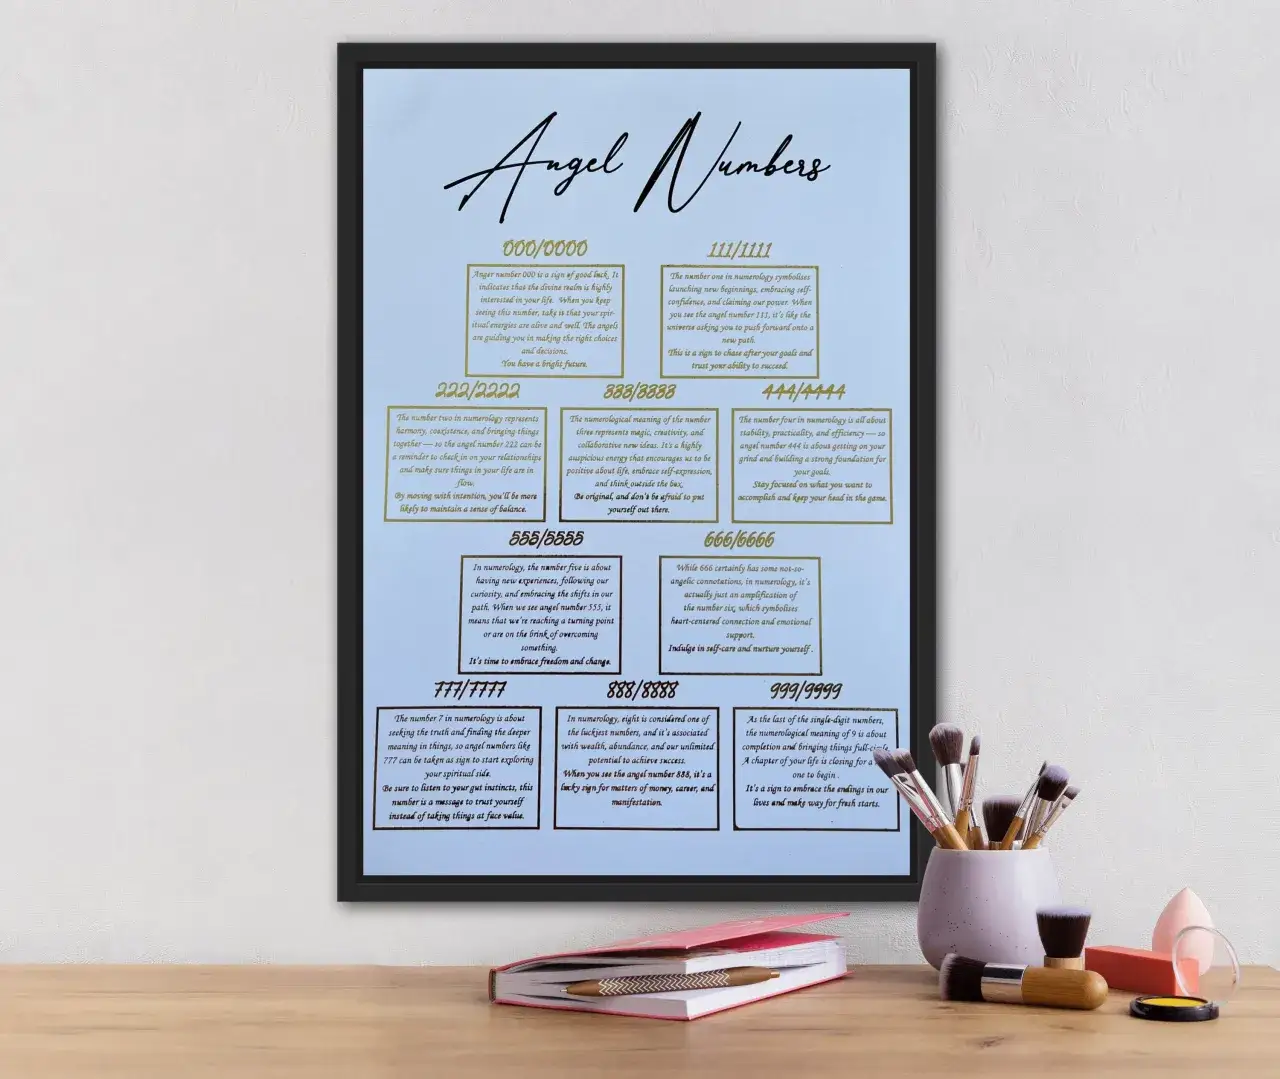 Angel Numbers
000/0000
Anger number 000 is a sign of good luck. It
indicates that the divine realm is highly
interested in your life. When you keep
seeing this number, take is that your spir-
itual energies are alive and well. The angels
are guiding you in making the right choices
and decisions.
You have a bright future.
111/1111
The number one in numerology symbolises
launching new beginnings, embracing self-
confidence, and claiming our power. When
you see the angel number 111, it's like the
universe asking you to push forward onto a
new path.
This is a sign to chase after your goals and
trust your ability to succeed.
222/2222
The number two in numerology represents
harmony, coexistence, and bringing things
together — so the angel number 222 can be
a reminder to check in on your relationships
and make sure things in your life are in
flow.
By moving with intention, you'll be more
likely to maintain a sense of balance.
333/3333
The numerological meaning of the number
three represents magic, creativity, and
collaborative new ideas. It's a highly
auspicious energy that encourages us to be
positive about life, embrace self-expression,
and think outside the box.
Be original, and don't be afraid to put
yourself out there.
444/4444
The number four in numerology is all about
stability, practicality, and efficiency — so
angel number 444 is about getting on your
grind and building a strong foundation for
your goals.
Stay focused on what you want to
accomplish and keep your head in the game.
555/5555
In numerology, the number five is about
having new experiences, following our
curiosity, and embracing the shifts in our
path. When we see angel number 555, it
means that we're reaching a turning point
or are on the brink of overcoming
something.
It's time to embrace freedom and change.
666/6666
While 666 certainly has some not-so-
angelic connotations, in numerology, it's
actually just an amplification of
the number six, which symbolises
heart-centered connection and emotional
support.
Indulge in self-care and nurture yourself .
777/7777
The number 7 in numerology is about
seeking the truth and finding the deeper
meaning in things, so angel numbers like
777 can be taken as sign to start exploring
your spiritual side.
Be sure to listen to your gut instincts, this
number is a message to trust yourself
instead of taking things at face value.
888/8888
In numerology, eight is considered one of
the luckiest numbers, and it's associated
with wealth, abundance, and our unlimited
potential to achieve success.
When you see the angel number 888, it's a
lucky sign for matters of money, career, and
manifestation.
999/9999
As the last of the single-digit numbers,
the numerological meaning of 9 is about
completion and bringing things full-circle.
A chapter of your life is closing for a
one to begin .
It's a sign to embrace the endings in our
lives and make way for fresh starts.